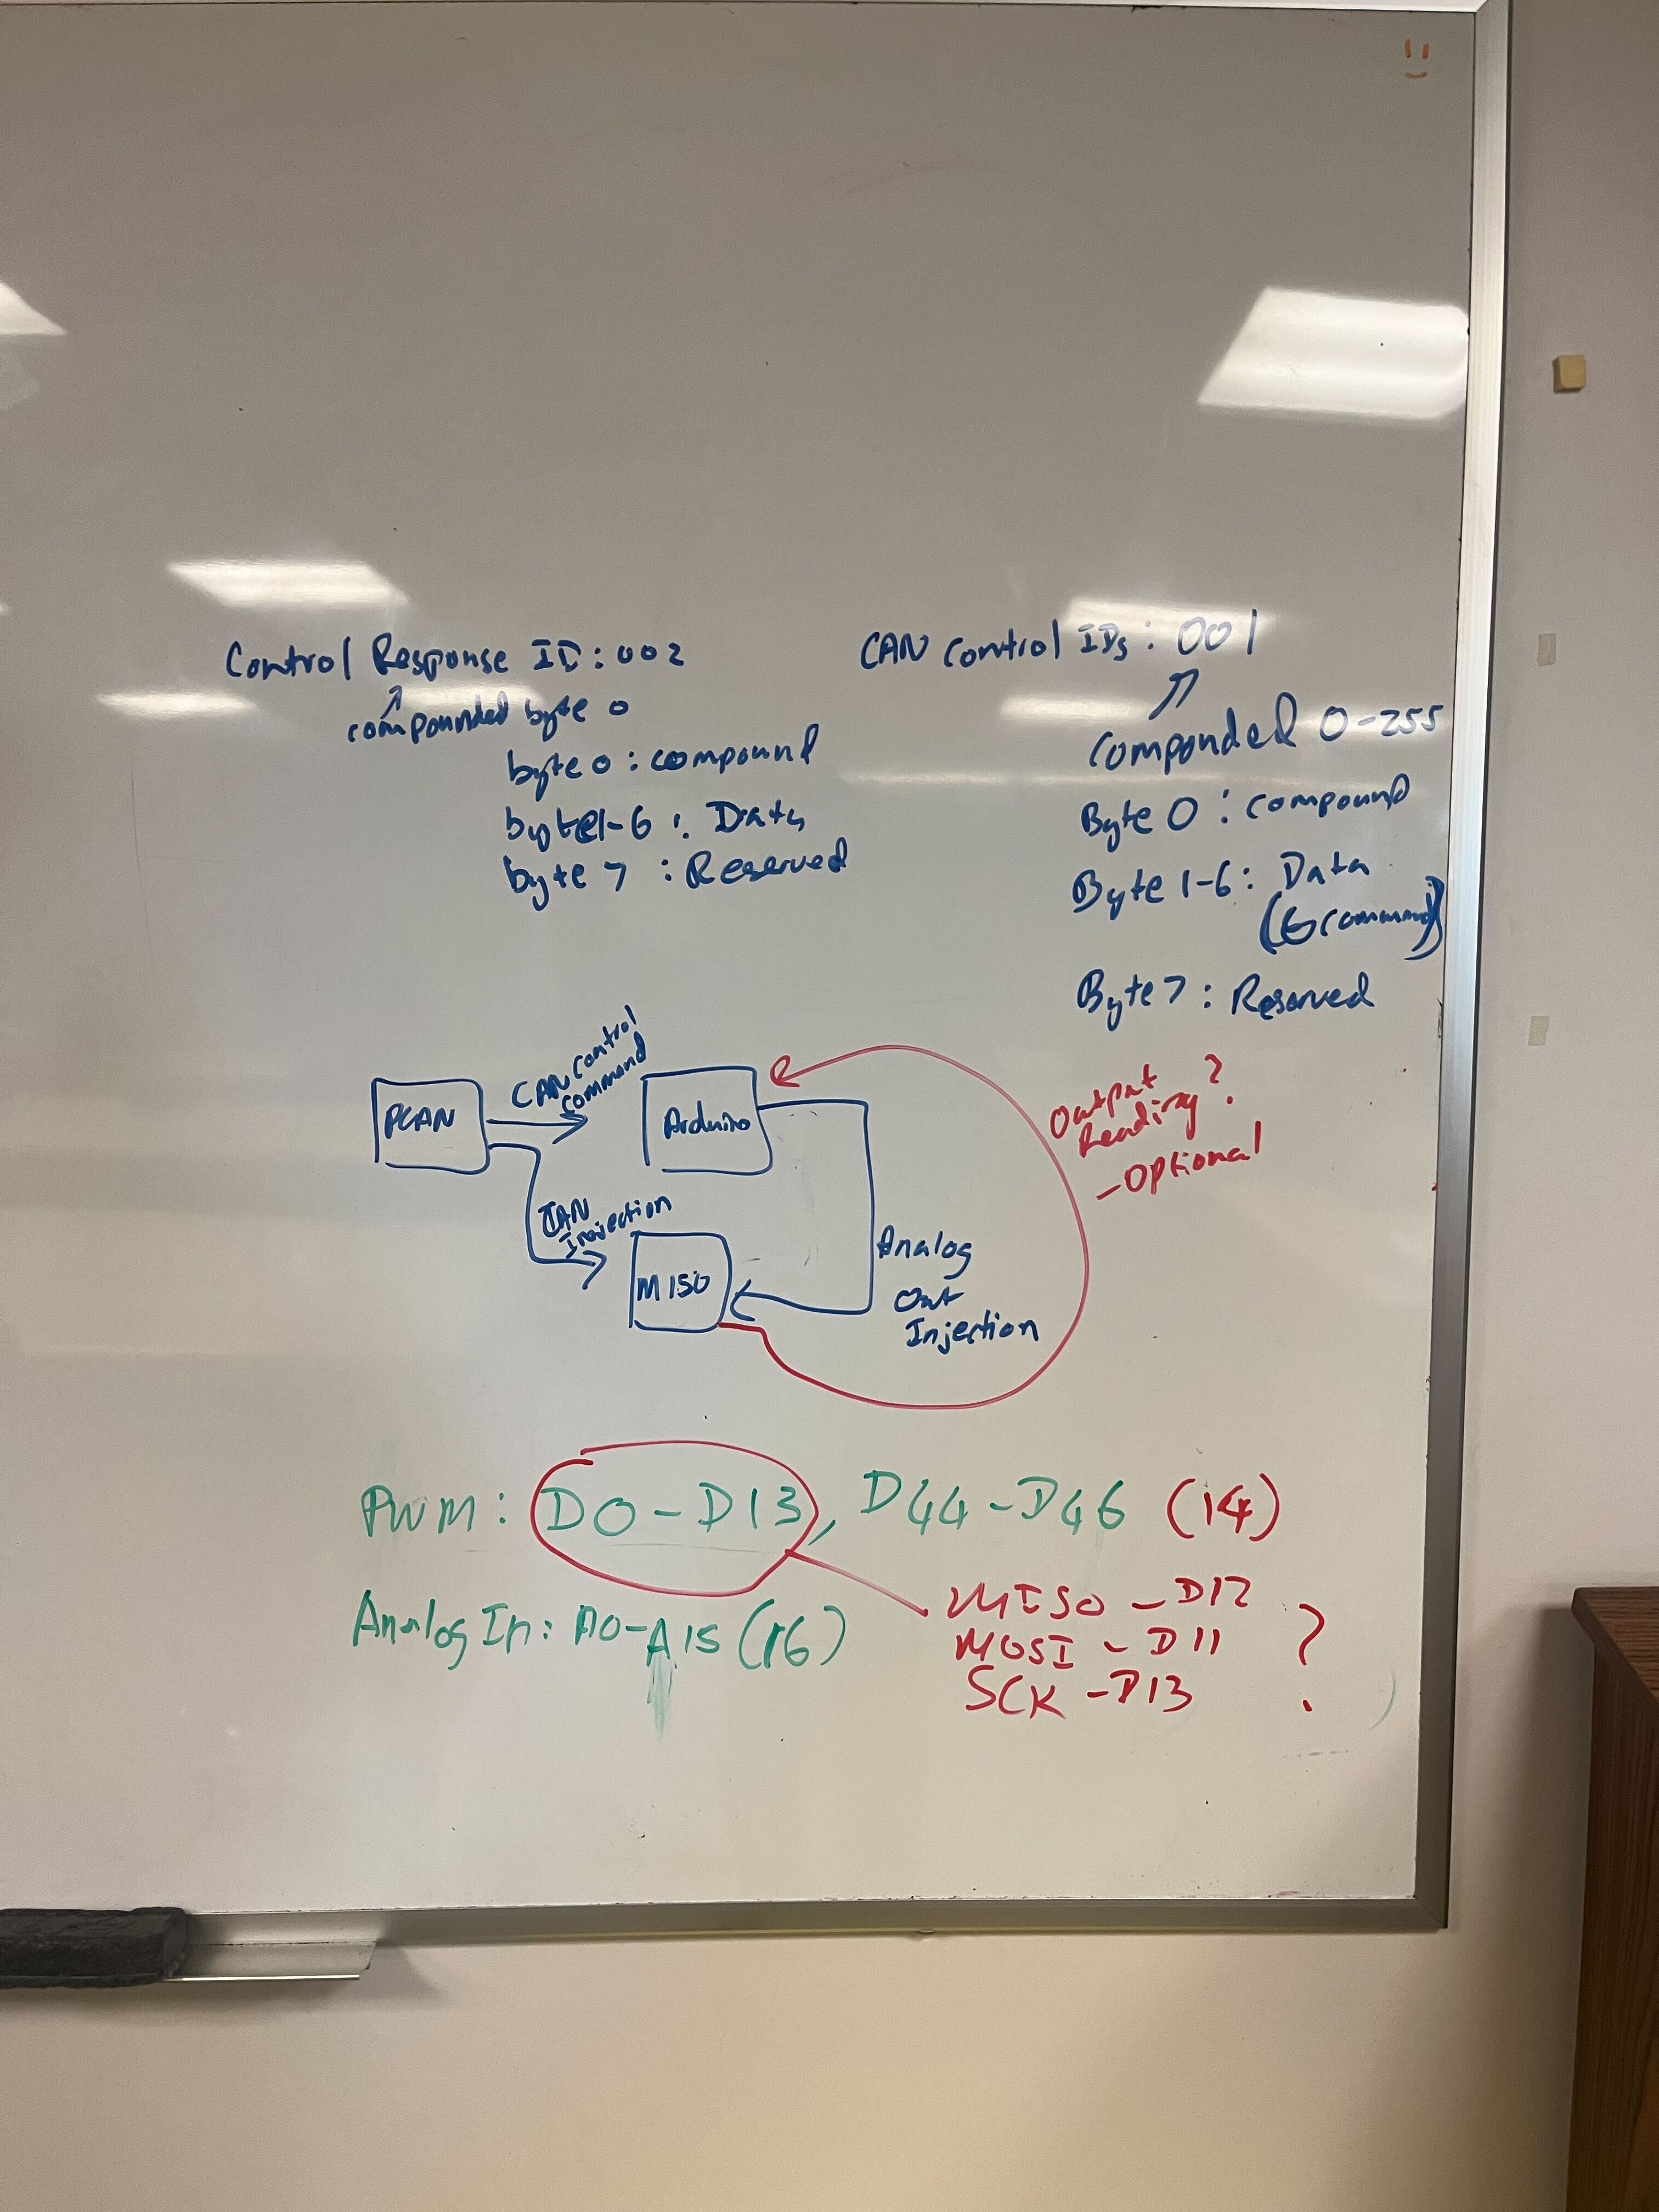 Control Response ID: 002
compounded byte 0
byte 0: compound
byte 1-6: Data
byte 7: Reserved
CAN Control IDs: 001
Componded 0-255
Byte 0: compound
Byte 1-6: Data
(6 command)
Byte 7: Reserved
PCAN
CAN Control
Command
Arduino
CAN
Injection
M150
Analog
Out
Injection
Output
Reading?
- Optional
PWM: D0-D13, D44-D46 (14)
Analog In: A0-A15 (16)
MISO - D12
MOSI - D11 ?
SCK - D13